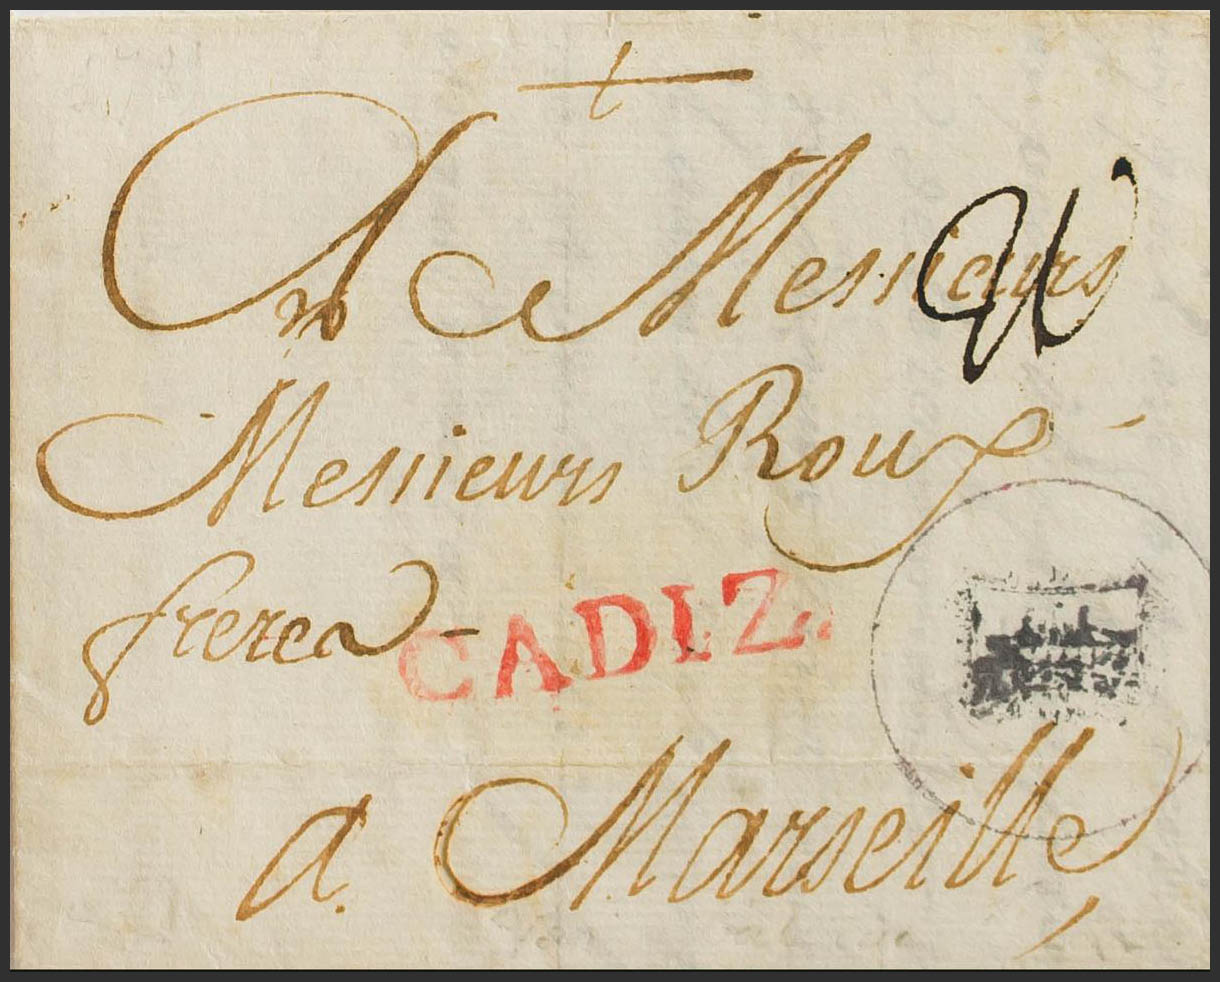 A Messieurs
Messieurs Roux
freres
CADIZ.
a. Marseille